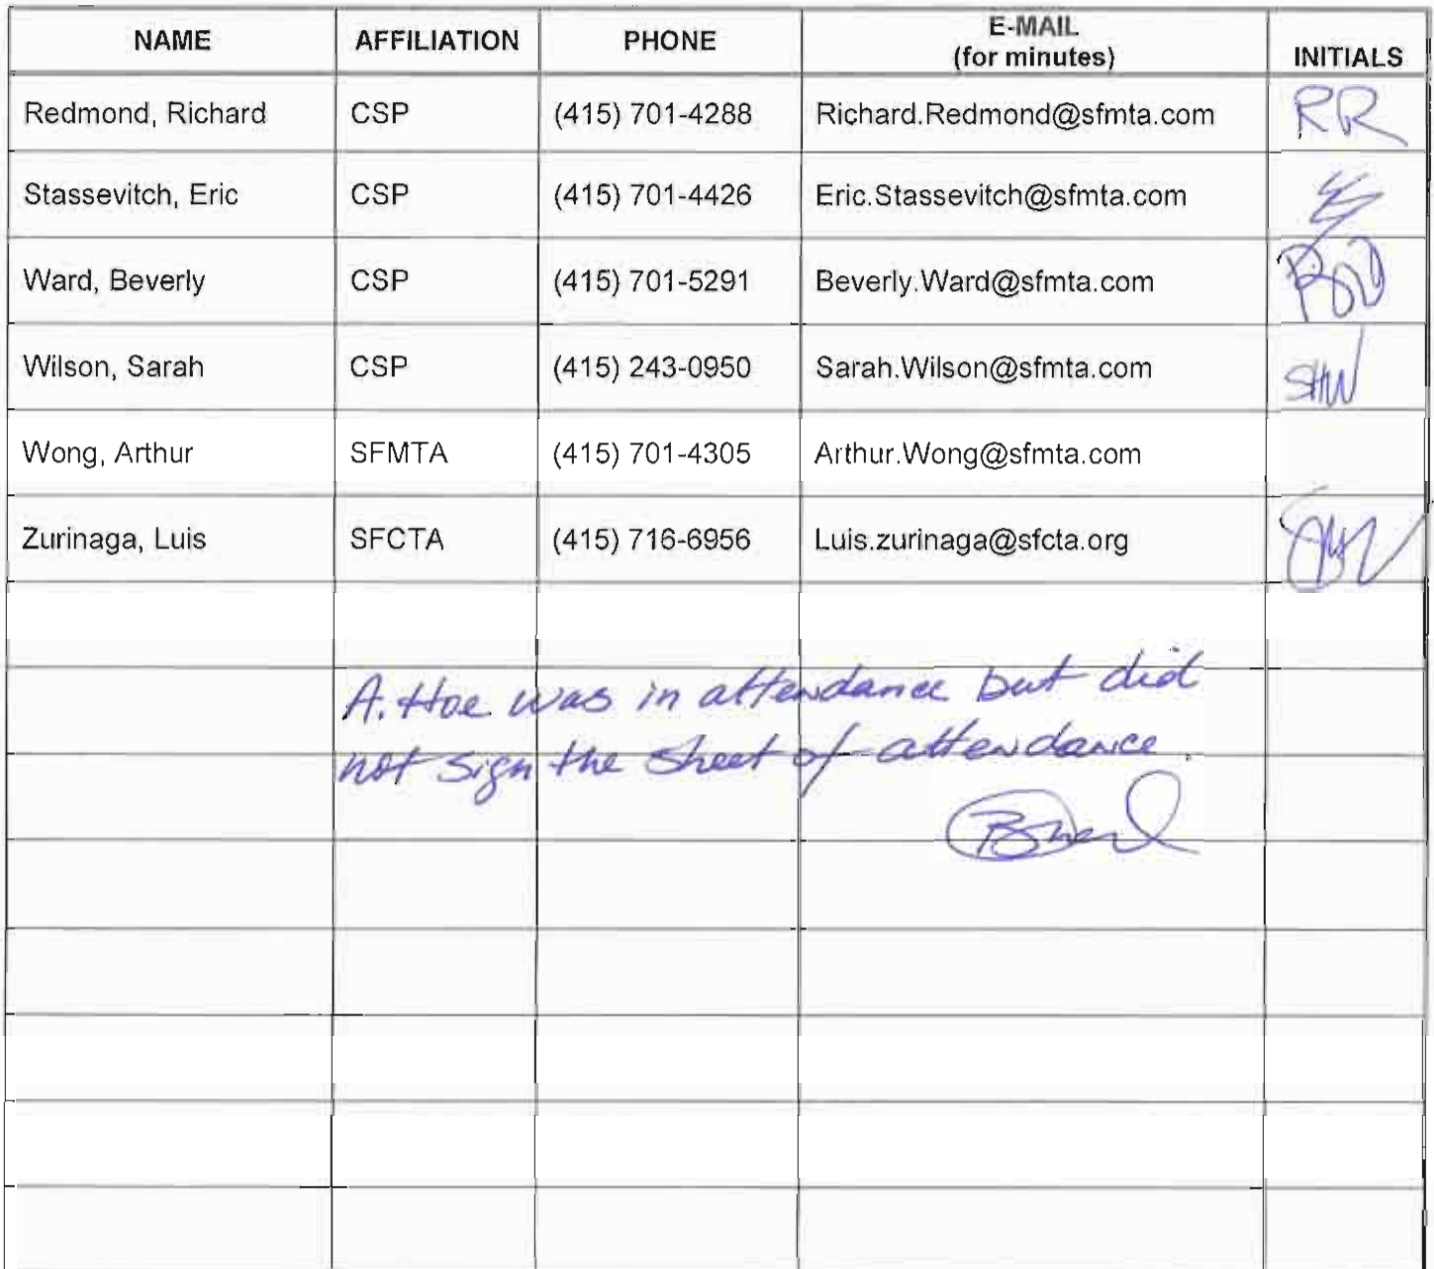 NAME AFFILIATION PHONE E-MAIL (for minutes) INITIALS
Redmond, Richard CSP (415) 701-4288 Richard.Redmond@sfmta.com RR
Stassevitch, Eric CSP (415) 701-4426 Eric.Stassevitch@sfmta.com
Ward, Beverly CSP (415) 701-5291 Beverly.Ward@sfmta.com
Wilson, Sarah CSP (415) 243-0950 Sarah.Wilson@sfmta.com SHW
Wong, Arthur SFMTA (415) 701-4305 Arthur.Wong@sfmta.com
Zurinaga, Luis SFCTA (415) 716-6956 Luis.zurinaga@sfcta.org
A. Hoe was in attendance but did
not sign the sheet of attendance.